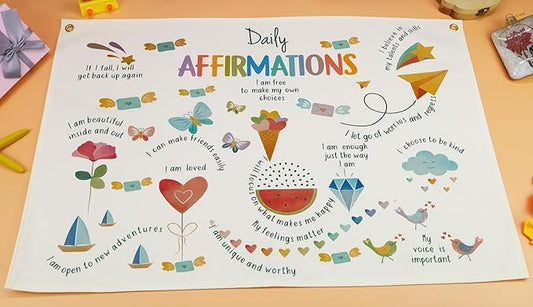 Daily
AFFIRMATIONS
If I fall, I will
get back up again
I am free
to make my own
choices
I believe in
my talents and skills
I am beautiful
inside and out
I can make friends easily
I let go of worries and regrets
I am loved
I will focus on what makes me happy
I am enough
just the way
I am
I choose to be kind
I am open to new adventures
I am unique and worthy
My feelings matter
My
voice is
important